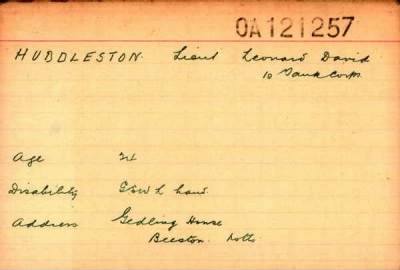 OA121257
HUDDLESTON. Lieut Leonard David
10 Tank Corps
Age
Disability GSW L hand.
Address Gedling House
Beeston. Notts.